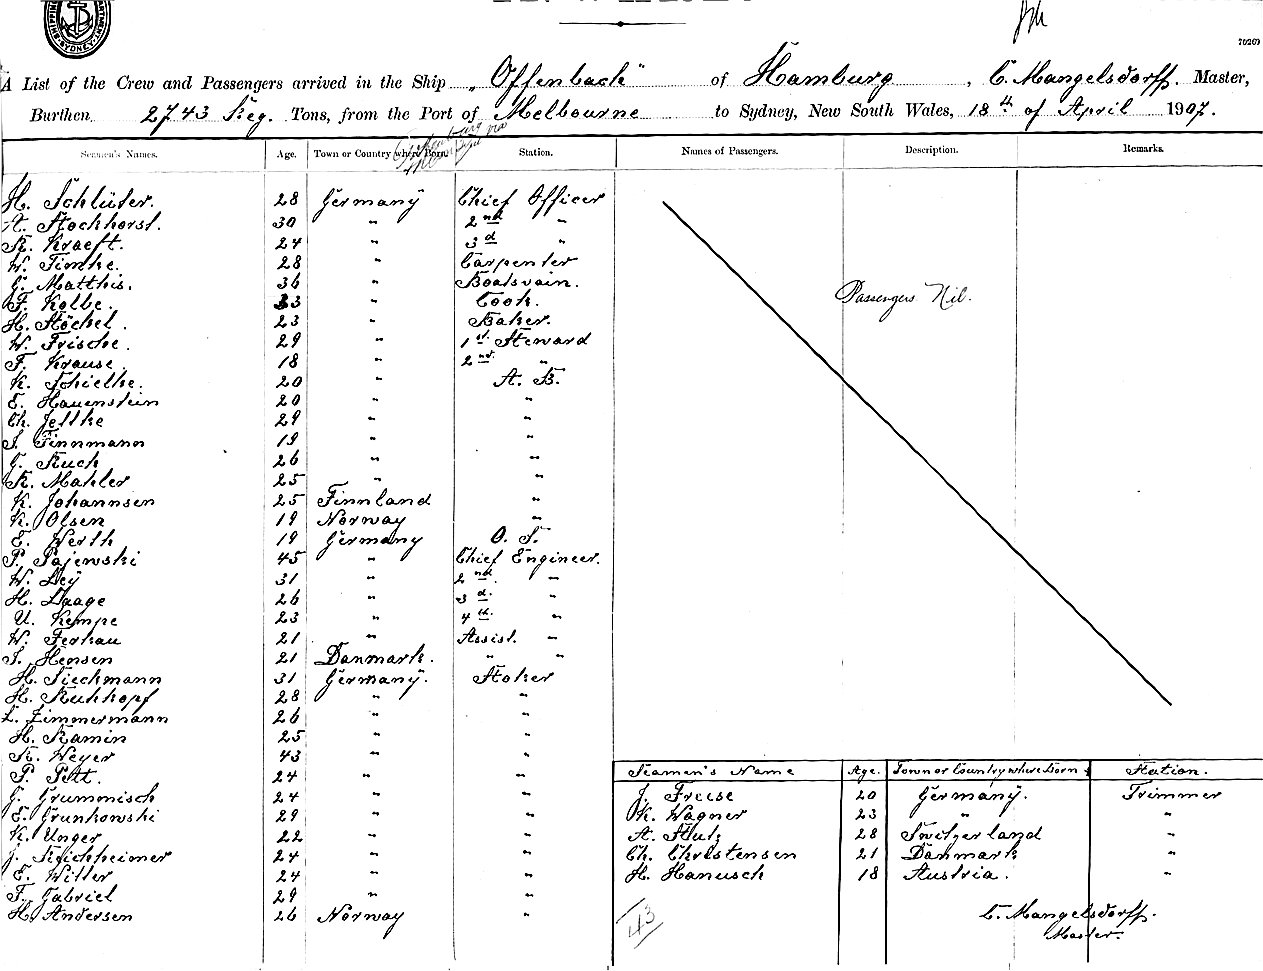 SYDNEY
70269
A List of the Crew and Passengers arrived in the Ship "Offenbach" of Hamburg, C. Mangelsdorff. Master,
Burthen 2743 Reg. Tons, from the Port of Melbourne to Sydney, New South Wales, 18th of April 1907.
Seamen's Names. Age. Town or Country where Born. Station. Names of Passengers. Description. Remarks.
H. Schlüter. 28 Germany Chief Officer
A. Stockhorst. 30 " 2nd "
R. Kraeft. 24 " 3d "
W. Timke. 28 " Carpenter
G. Matthis. 36 " Boatsvain.
F. Kolbe. 33 " Cook.
H. Stöckel. 23 " Baker.
W. Frische. 29 " 1st Steward
F. Krause, 18 " 2nd "
K. Schielke. 20 " A. B.
E. Hauenstein 20 " "
Ch. Jeltke 29 " "
J. Finnmann 19 " "
G. Kuch 26 " "
R. Mahler 25 " "
K. Johannsen 25 Finnland "
K. Olsen 19 Norway "
E. Werth 19 Germany O. S.
P. Pajewski 45 " Chief Engineer.
W. Dey 31 " 2nd. "
H. Daage 26 " 3d. "
U. Kempe 23 " 4th. "
W. Ferkau 21 " Assist. "
J. Hensen 21 Danmark. " "
H. Tieckmann 31 Germany. Stoker
H. Kuhkopf 28 " "
L. Zimmermann 26 " "
H. Ramin 25 " "
R. Weyer 43 " "
P. Pett. 24 " "
G. Grummisch 24 " "
E. Grunkowski 29 " "
K. Unger 22 " "
J. Reichheimer 24 " "
E. Witter 24 " "
F. Gabriel 29 " "
H. Andersen 26 Norway "
Passengers Nil.
Seamen's Name Age. Town or Country where Born Station.
J. Freese 20 Germany. Trimmer
K. Wagner 23 " "
A. Stutz 28 Switzerland "
Ch. Christensen 21 Danmark "
H. Hanusch 18 Austria. "
43
C. Mangelsdorff.
Master.